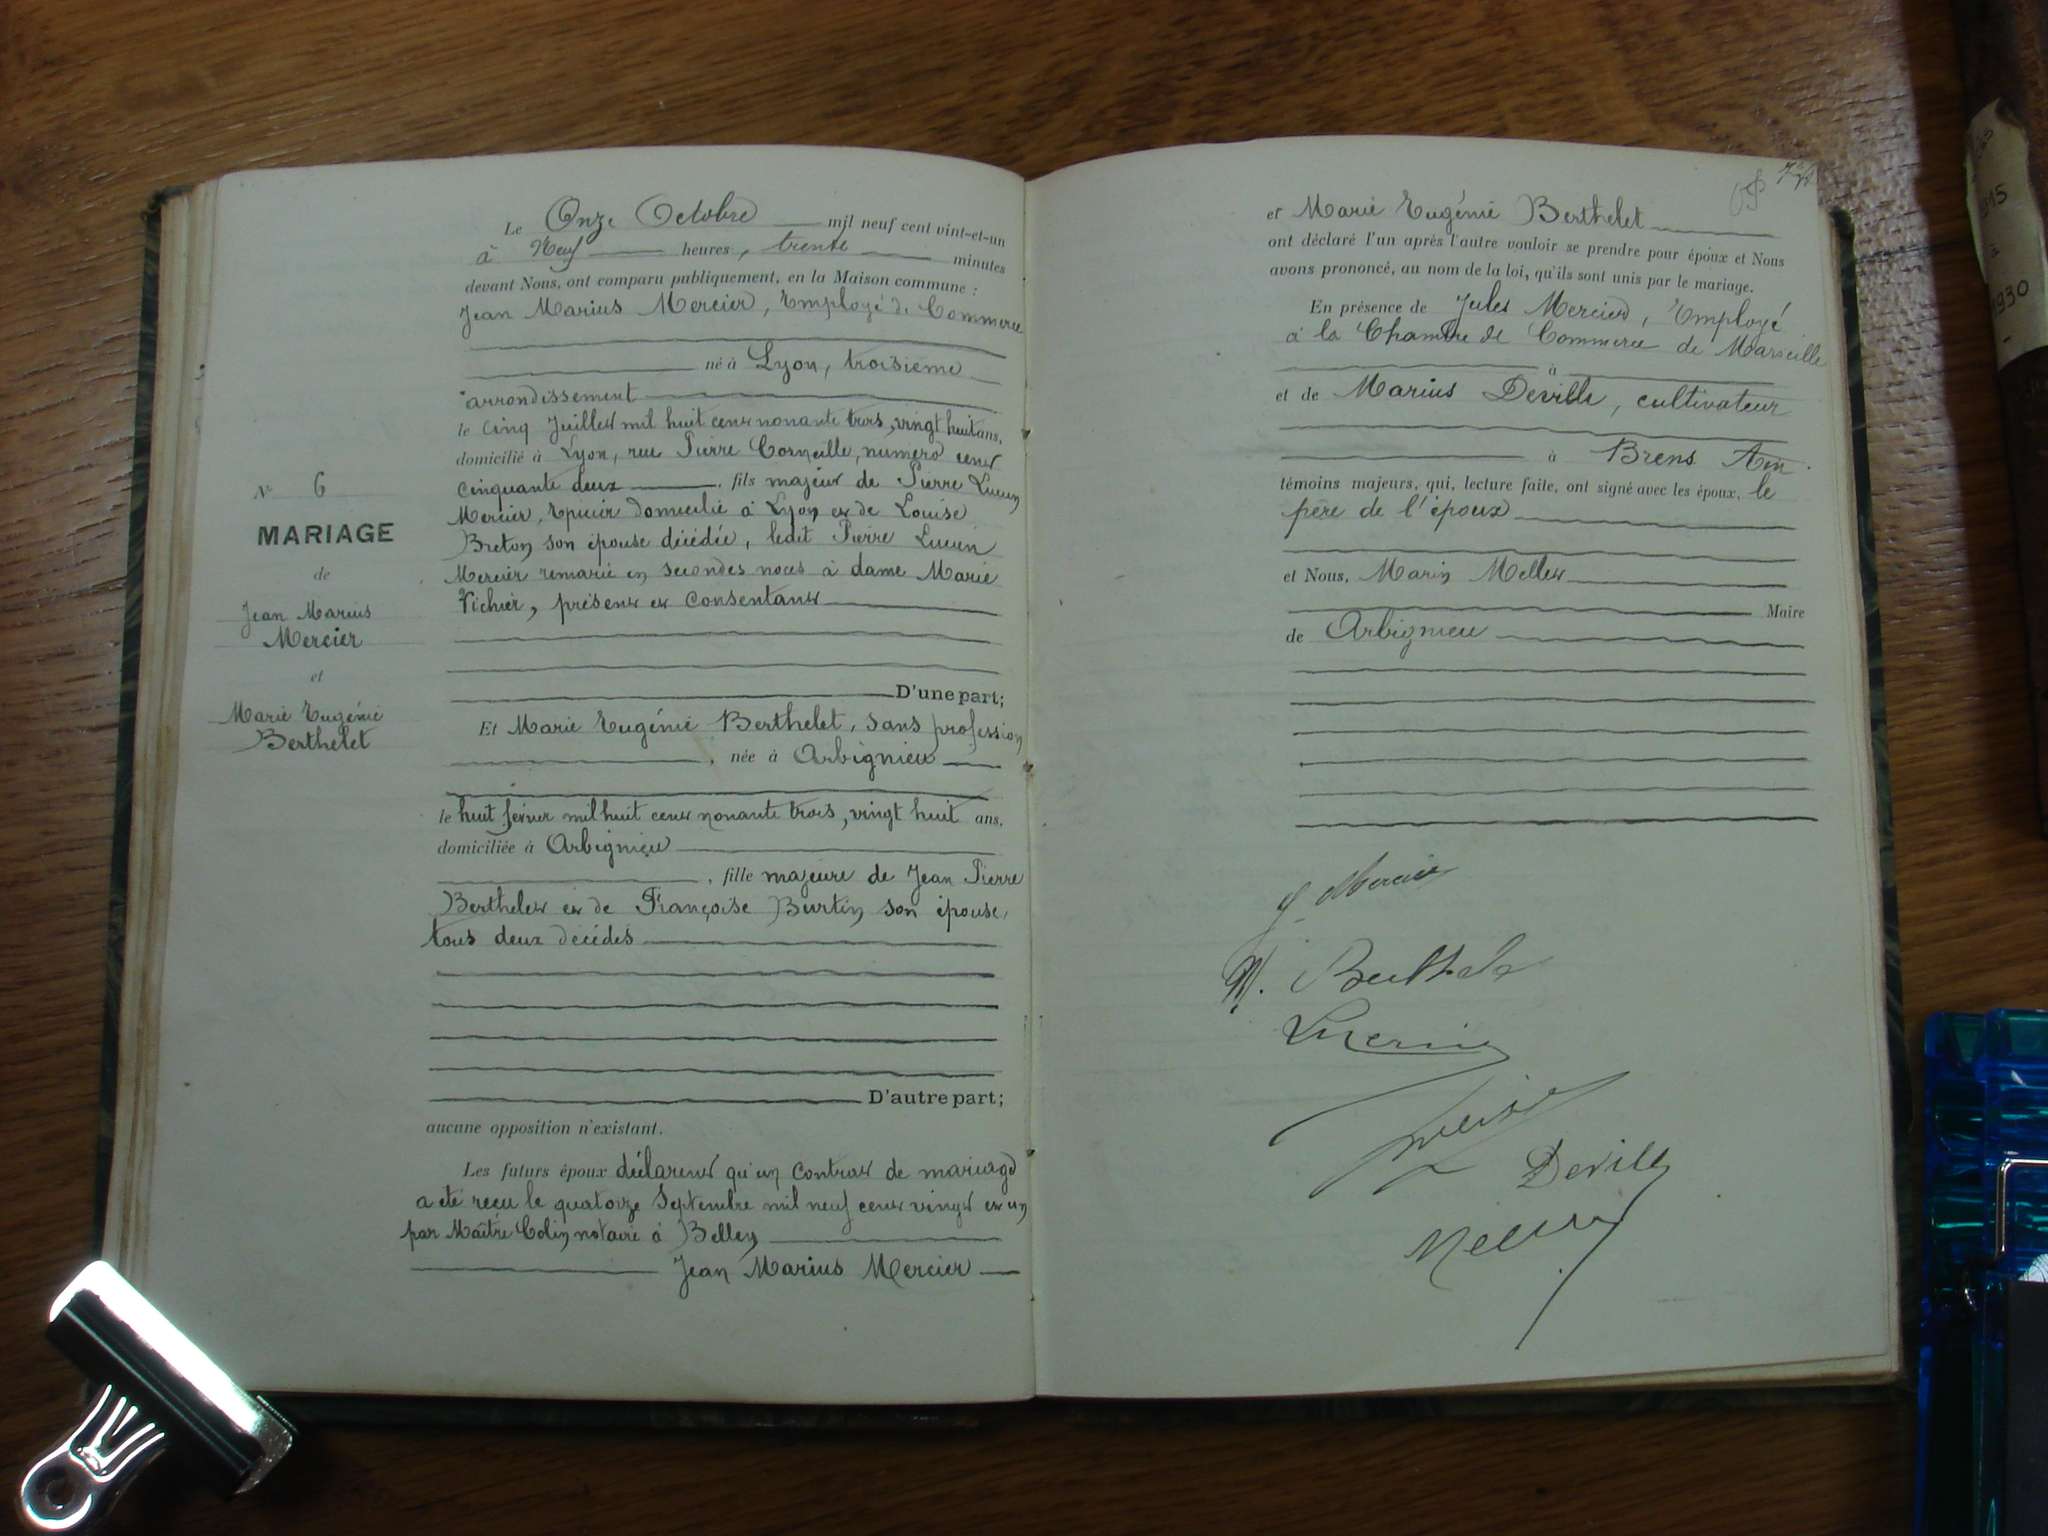 Le Onze Octobre mil neuf cent vint-et-un
à Neuf heures, trente minutes
devant Nous, ont comparu publiquement, en la Maison commune :
Jean Marius Mercier, Employé de Commerce
né à Lyon, troisième
arrondissement
le cinq Juillet mil huit cent nonante trois, vingt huit ans,
domicilié à Lyon, rue Pierre Corneille, numéro cent
cinquante deux, fils majeur de Pierre Lucien
Mercier, Epicier domicilié à Lyon et de Louise
Breton son épouse décédée, ledit Pierre Lucien
Mercier remarié en secondes noces à dame Marie
Vichier, présent et consentant
D'une part;
Et Marie Eugénie Berthelet, sans profession
, née à Arbignieu
le huit février mil huit cent nonante trois, vingt huit ans,
domiciliée à Arbignieu
, fille majeure de Jean Pierre
Berthelet et de Françoise Burtin son épouse,
tous deux décédés
D'autre part;
aucune opposition n'existant.
Les futurs époux déclarent qu'un contrat de mariage
a été reçu le quatorze Septembre mil neuf cent vingt et un
par Maître Colin notaire à Belley
Jean Marius Mercier
N° 6
MARIAGE
de
Jean Marius
Mercier
et
Marie Eugénie
Berthelet
et Marie Eugénie Berthelet
ont déclaré l'un après l'autre vouloir se prendre pour époux et Nous
avons prononcé, au nom de la loi, qu'ils sont unis par le mariage.
En présence de Jules Mercier, Employé
à la Chambre de Commerce de Marseille
à
et de Marius Deville, cultivateur
à Brens Ain.
témoins majeurs, qui, lecture faite, ont signé avec les époux, le
père de l'époux
et Nous, Marin Mellet
Maire
de Arbignieu
J. Mercier
M. Berthelet
Deville
Mellet
1915
à
1930